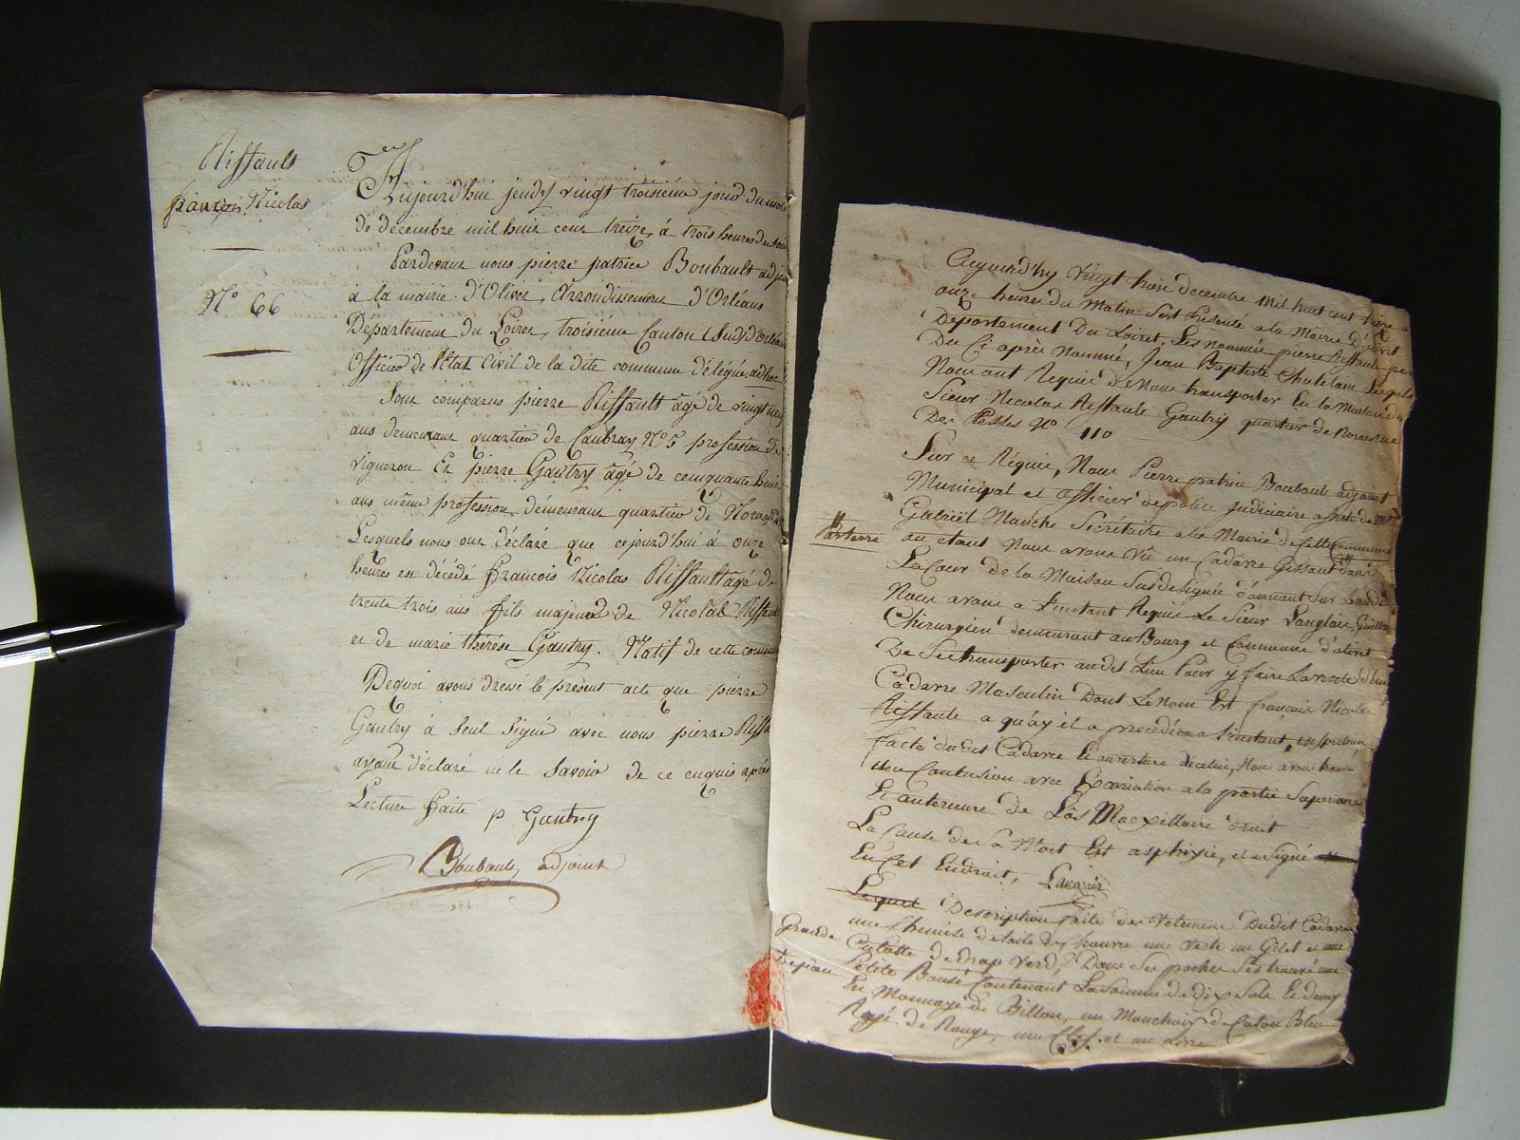 Riffault
françois Nicolas
N° 66
Aujourd'hui jeudy vingt troisieme jour du mois
de decembre mil huit cent treize, à trois heures du soir
Pardevant nous pierre patrice Boubault adjoint
à la mairie d'Olivet, Arrondissement d'Orléans
Département du Loiret, troisieme Canton (Sud) d'orléans
Officier de l'Etat Civil de la dite commune délégué adhoc
Sont comparus pierre Riffault âgé de vingt
ans demeurant quartier de Caubray N° 5 profession de
vigneron Et pierre Gautry âgé de cinquante huit
ans même profession, demeurant quartier de
Lesquels nous ont déclaré que cejourd'hui à onze
heures est décédé francois Nicolas Riffault agé de
trente trois ans fils majeur de Nicolas Riffault
et de marie thérèse Gautry. Natif de cette commune
Dequoi avons dressé le présent acte que pierre
Gautry à seul signé avec nous pierre Riffault
ayant déclaré ne le savoir de ce enquis après
Lecture faite p Gautry
Boubault, adjoint
Aujourd'hy vingt trois decembre mil huit cent treize a
onze heures du Matin Sest Présenté a la Mairie d'olivet
Departement Du Loiret, Les nommés pierre Riffault
Du Ci après Nommé, Jean Baptiste Chatelain
Nous ont Requis De Nous transporter En la Maison
Sieur Nicolas Riffault Gautry quartier de
Des N° 110
Sur ce Réquis, Nous Pierre patrice Boubault adjoint
Municipal et officier de police Judiciaire assisté de
Gabriël Manche Secrétaire a la Mairie de Cette Commune
parterre
au etant Nous avons Vû un Cadavre Gissant dans
La Cour de la Maison Susdesignée étannant sur
Nous avons a Linstant Requis Le Sieur Langlois,
Chirurgien demeurant au Bourg et Commune d'olivet
De Se transporter audit Lieu Pour y faire La visite d'un
Cadavre Masculin Dont Le nom Est françois Nicolas
Riffault a quoy il a procédé a Linstant,
facte dudit Cadavre Et ouverture Dicelui, Nous avons trouvé
une Contusion avec Excoriation a la partie Superieure
Et antérieure de L'os Maxillaire droit
La Cause de sa Mort Est asphixie, et a signé
En Cet Endroit,
Lequel Description faite des Vetement Dudit Cadavre
une Chemise de toile de chanvre une veste un Gilet et une
Grande Culotte de drap verd, Dans Ses poches S'est trouvé une
Petite Bourse Contenant La Somme de dix Sols Et demy
En Monnoye de Billon, un Mouchoir de Coton Bleu
Rayé de Rouge, une Clef et un